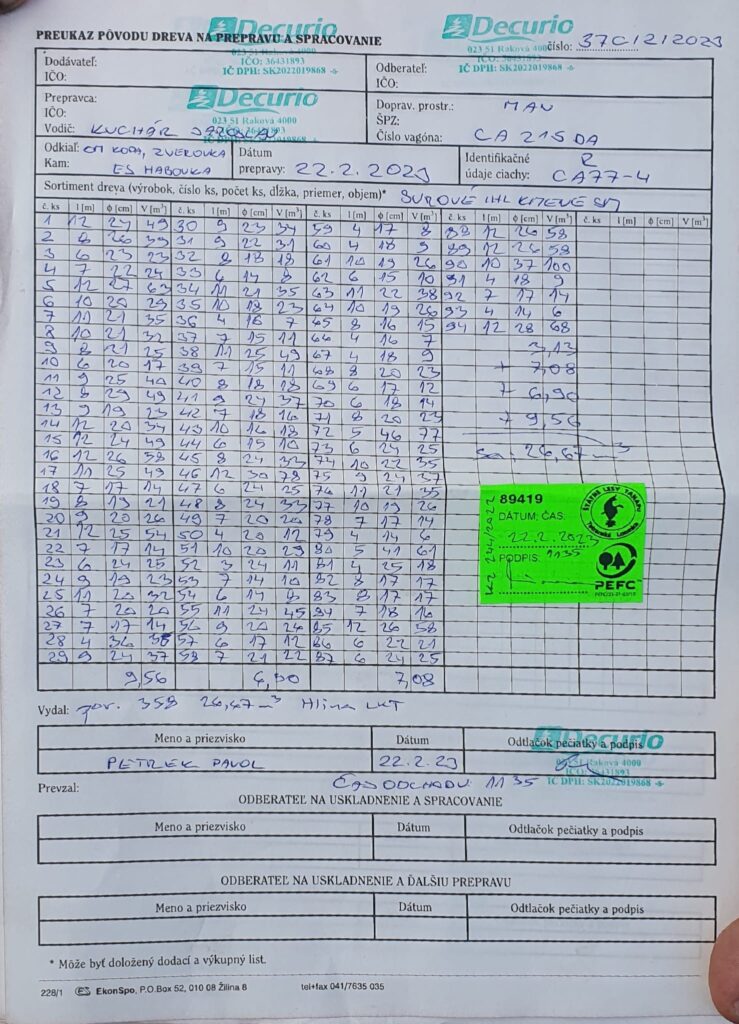 Decurio
023 51 Raková 4000
IČO: 36431893
IČ DPH: SK2022019868
Decurio
023 51 Raková 4000
IČO: 36431893
IČ DPH: SK2022019868
PREUKAZ PÔVODU DREVA NA PREPRAVU A SPRACOVANIE
číslo: 370/2/2023
Dodávateľ:
IČO:
Odberateľ:
IČO:
Decurio
023 51 Raková 4000
Prepravca:
IČO:
Vodič: KUCHÁR JAROSLAV
Doprav. prostr.: MAN
ŠPZ:
Číslo vagóna: CA 215 DA
Odkiaľ: OM KODA, ZVEROVKA
Kam: ES HABOVKA
Dátum prepravy: 22.2.2023
Identifikačné údaje ciachy: R CA77-4
Sortiment dreva (výrobok, číslo ks, počet ks, dĺžka, priemer, objem)* SUROVÉ IHL KMEŇE SM
č. ks l [m] ϕ [cm] V [m³] č. ks l [m] ϕ [cm] V [m³] č. ks l [m] ϕ [cm] V [m³] č. ks l [m] ϕ [cm] V [m³] č. ks l [m] ϕ [cm] V [m³]
1 12 24 49 30 9 23 34 59 4 17 8 88 12 26 58
2 8 26 39 31 9 22 31 60 4 18 9 89 12 26 58
3 6 23 23 32 8 18 18 61 10 19 26 90 10 37 100
4 7 22 24 33 6 14 8 62 6 15 10 91 4 18 9
5 12 27 63 34 11 21 35 63 11 22 38 92 7 17 14
6 10 20 29 35 10 18 23 64 10 19 26 93 4 14 6
7 11 21 35 36 4 16 7 65 8 16 15 94 12 28 68
8 10 21 32 37 7 15 11 66 4 16 7
9 8 21 25 38 11 25 49 67 4 18 9 3,13
10 6 20 17 39 7 15 11 68 8 20 23 + 7,08
11 9 25 40 40 8 18 18 69 6 17 12 + 6,90
12 8 29 49 41 9 24 37 70 6 18 14
13 9 19 23 42 7 18 16 71 8 20 23 + 9,56
14 12 20 34 43 10 16 18 72 5 46 77
15 12 24 49 44 6 15 10 73 6 24 25 Sa: 26,67 m³
16 12 26 58 45 8 24 33 74 10 22 35
17 11 25 49 46 12 30 78 75 9 24 37
18 7 17 14 47 6 24 25 76 11 21 35
19 8 19 21 48 8 24 33 77 10 19 26
20 9 20 26 49 7 20 20 78 7 17 14
21 12 25 54 50 4 20 12 79 4 14 6
22 7 17 14 51 10 20 29 80 5 41 61
23 6 24 25 52 3 24 11 81 4 25 18
24 9 19 23 53 7 14 10 82 8 17 17
25 11 20 32 54 6 14 8 83 8 17 17
26 7 20 20 55 11 24 45 84 7 18 16
27 7 17 14 56 9 20 26 85 12 26 58
28 4 36 38 57 6 17 12 86 6 22 21
29 9 24 37 58 7 21 22 87 6 24 25
9,56 6,90 7,08
89419
DÁTUM, ČAS:
22.2.2023
1135
PODPIS:
ŠTÁTNE LESY TANAPU
Tatranská Lomnica
PEFC
Vydal: por. 358 26,67 m³ Hlina LKT
Meno a priezvisko Dátum Odtlačok pečiatky a podpis
PETREK PAVOL 22.2.23
Decurio
023 51 Raková 4000
IČO: 36431893
IČ DPH: SK2022019868
Prevzal: ČAS ODCHODU 11 35
ODBERATEĽ NA USKLADNENIE A SPRACOVANIE
Meno a priezvisko Dátum Odtlačok pečiatky a podpis
ODBERATEĽ NA USKLADNENIE A ĎALŠIU PREPRAVU
Meno a priezvisko Dátum Odtlačok pečiatky a podpis
* Môže byť doložený dodací a výkupný list.
228/1 ES EkonSpo, P.O.Box 52, 010 08 Žilina 8 tel+fax 041/7635 035